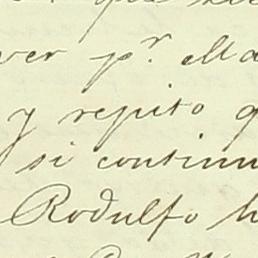 ver pr. ella
y repito q
si continu
Rodulfo h